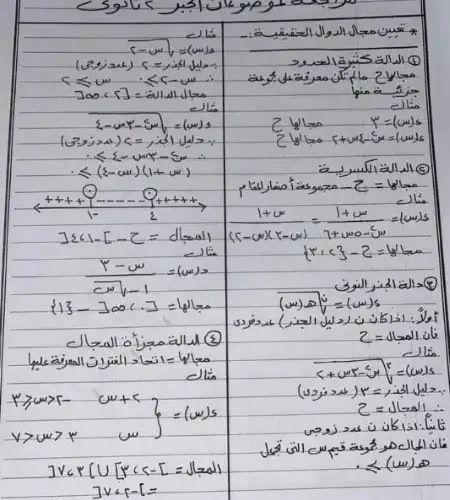 مراجعة موضوعات الجبر ٢ ثانوى
* تعيين مجال الدوال الحقيقية :-
① الدالة كثيرة الحدود
مجالها ح مالم تكن معرفة على مجموعة
جزئية منها
مثال
د(س) = ٣ مجالها ح
د(س) = س² - ٤س + ٢ مجالها ح
② الدالة الكسرية
مجالها = ح - مجموعة أصفار المقام
مثال
د(س) = (س + ١) / (س² - ٥س + ٦) = (س + ١) / (س - ٣)(س - ٢)
مجالها = ح - {٢ ، ٣}
③ دالة الجذر النونى
د(س) = ⁿ√ه(س)
أولاً: اذا كان ن (دليل الجذر) عدد فردى
فان المجال = ح
مثال
د(س) = ³√(س² - ٣س + ٢)
∵ دليل الجذر = ٣ (عدد فردى)
∴ المجال = ح
ثانياً: اذا كان ن عدد زوجى
فان المجال هو مجموعة قيم س التى تجعل
ه(س) ≥ ٠
مثال
د(س) = √(س - ٢)
∵ دليل الجذر = ٢ (عدد زوجى)
∴ س - ٢ ≥ ٠ س ≥ ٢
مجال الدالة = [٢ ، ∞[
مثال
د(س) = √(س² - ٣س - ٤)
∵ دليل الجذر = ٢ (عدد زوجى)
س² - ٣س - ٤ ≥ ٠
(س + ١)(س - ٤) ≥ ٠
++++ - - - - - - +++++
-١ ٤
المجال = ح - ]-١ ، ٤[
مثال
د(س) = (س - ٣) / (√س - ١)
مجالها = [٠ ، ∞[ - {١}
④ الدالة مجزأة المجال
مجالها = اتحاد الفترات المعرفة عليها
مثال
س + ٢ -٢ < س ≤ ٣
د(س) = {
س ٣ < س < ٧
المجال = ]-٢ ، ٣] ∪ ]٣ ، ٧[
= ]-٢ ، ٧[